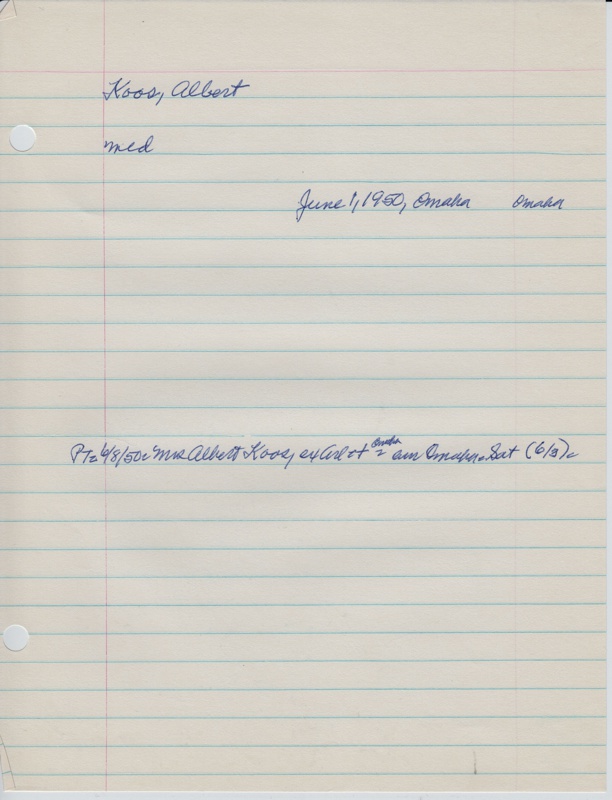 Koos, Albert
med
June 1, 1950, Omaha Omaha
Omaha
PT= 6/8/50= Mrs Albert Koos, ex Arl at = am Omaha. Sat (6/3)=